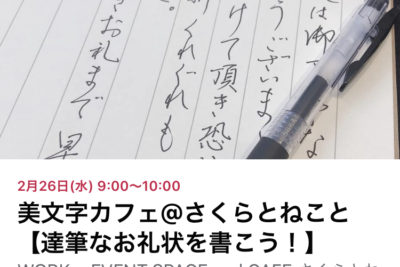 は御
うございまし
けて頂き恐
くれぐれも
。
お礼まで
2月26日(水) 9:00〜10:00
美文字カフェ@さくらとねこと
【達筆なお礼状を書こう！】